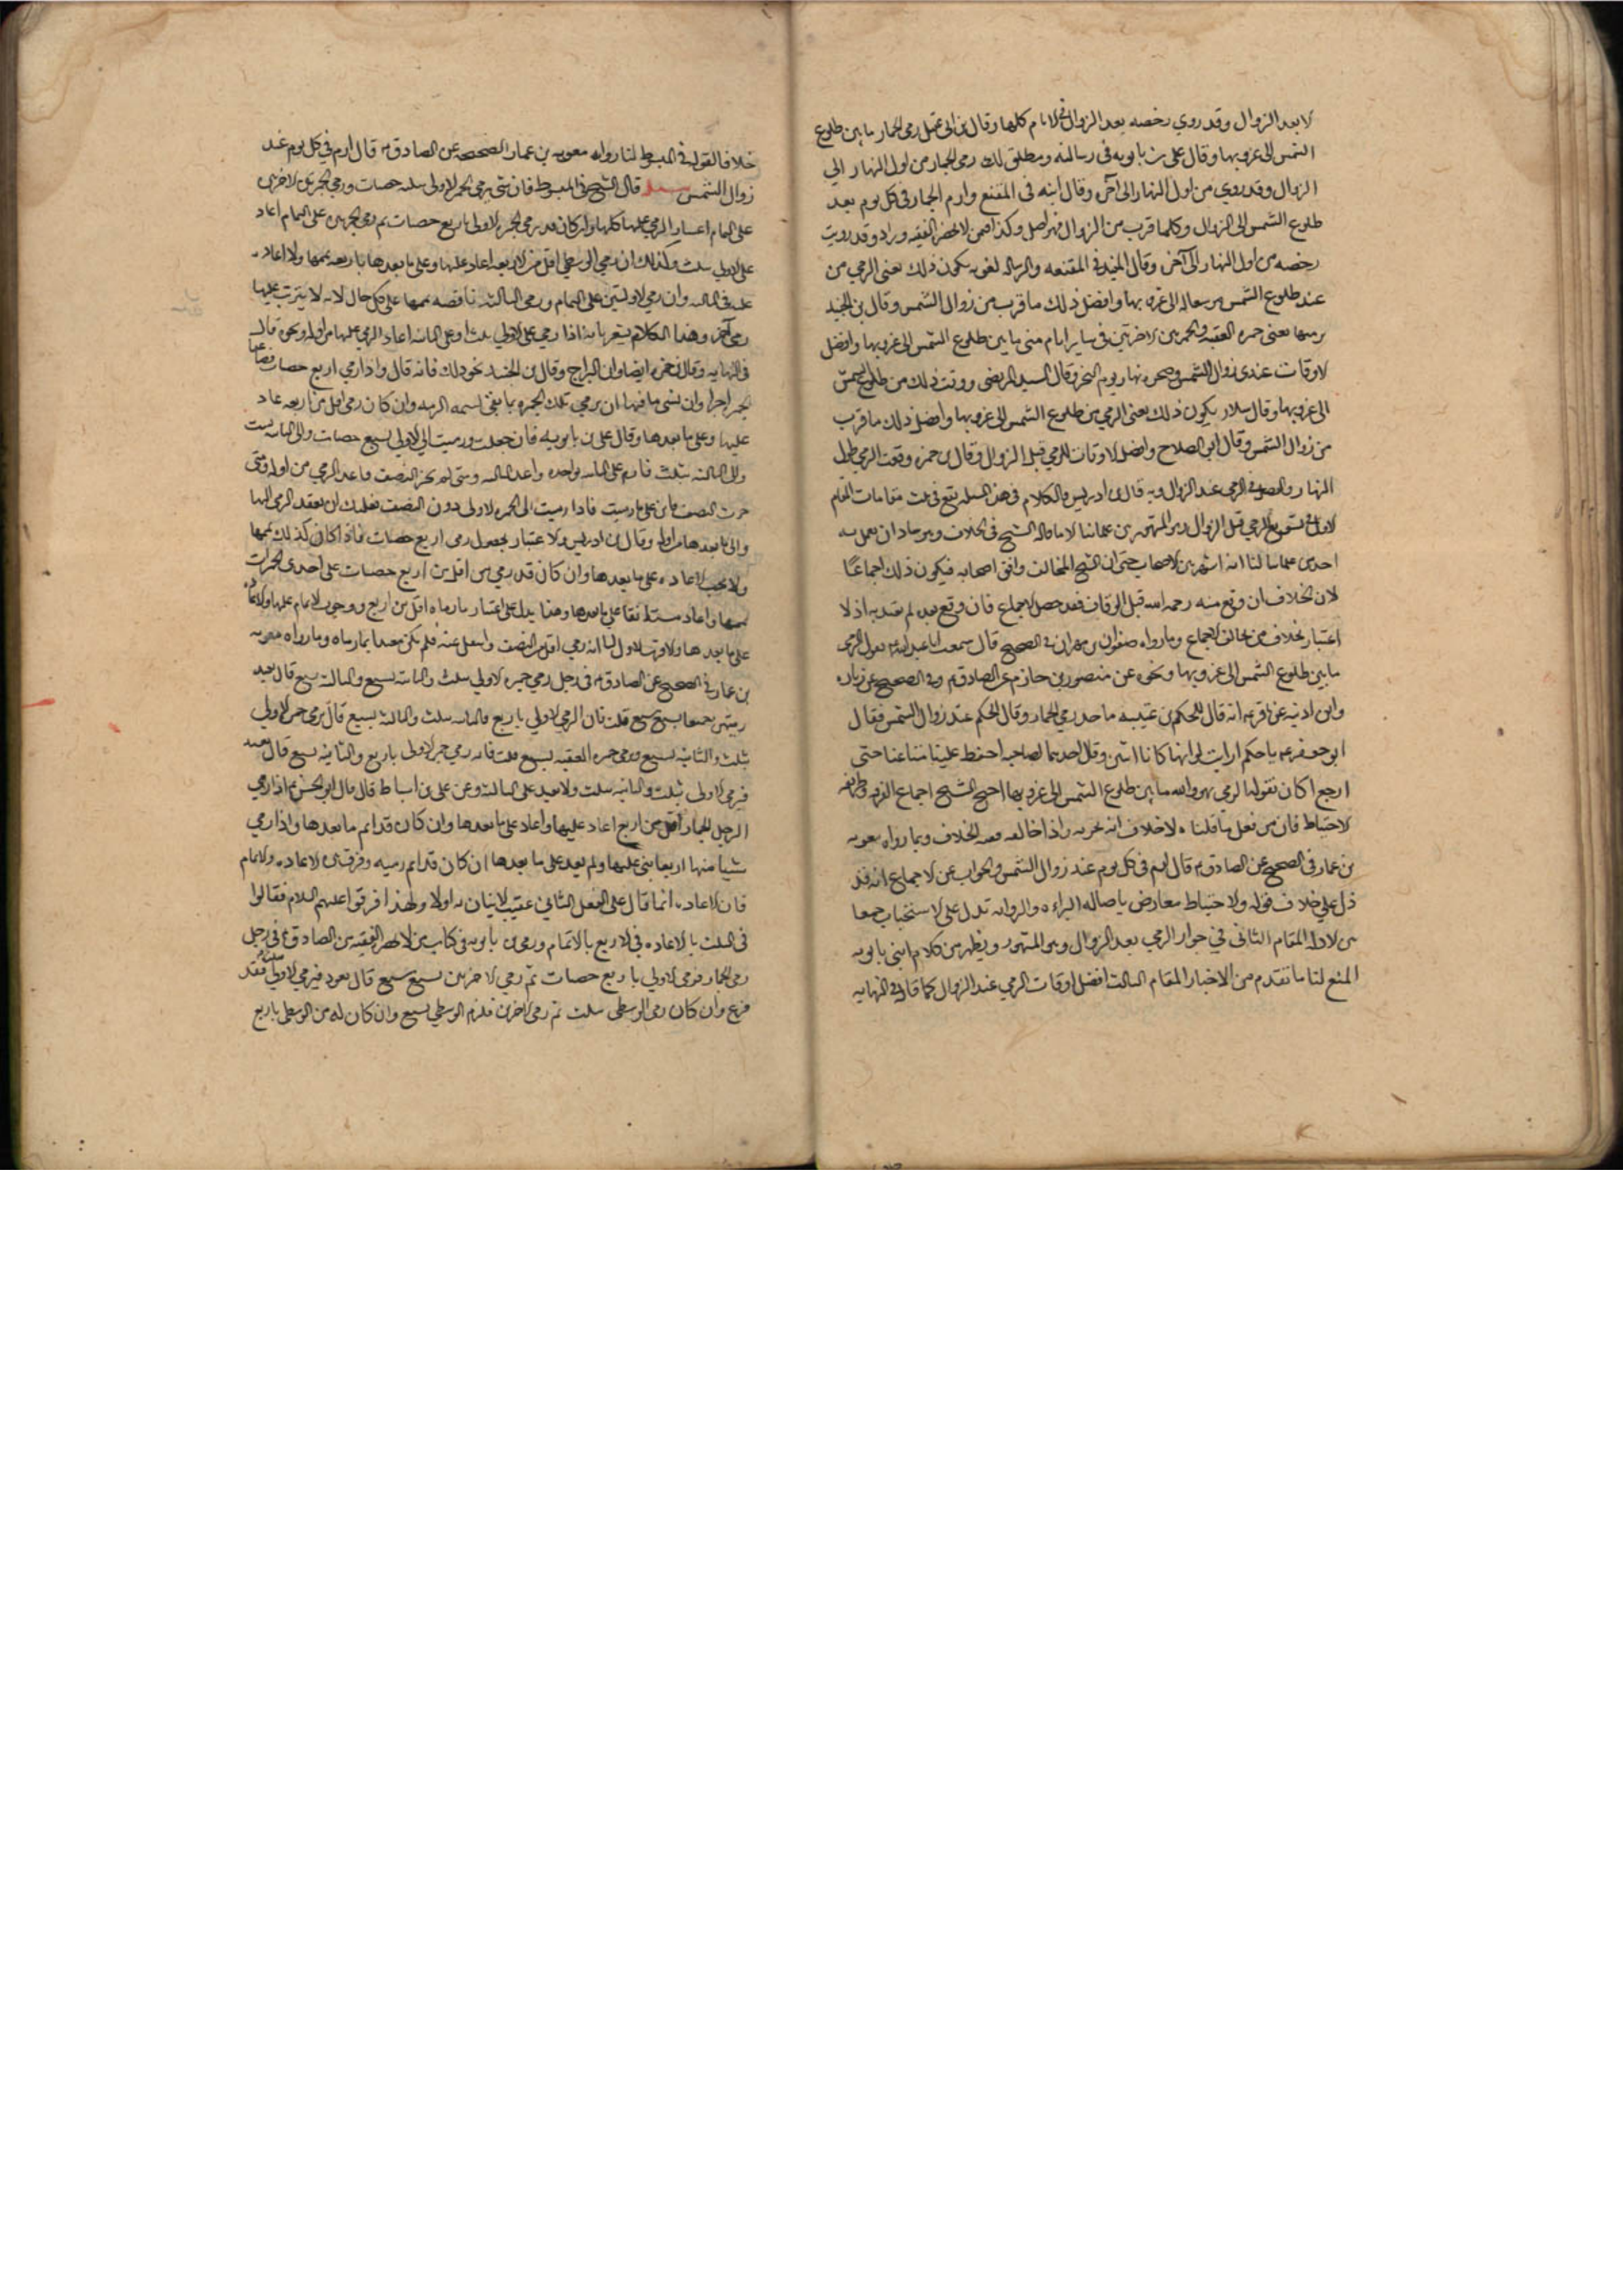 لا بعد الزوال وقد روي رخصه بعد الزوال في الايام كلها وقال بن ابي عقيل رمى الجمار ما بين طلوع
الشمس الى غروبها وقال علي بن بابويه في رسالته ومطلق لك رمى الجمار من اول النهار الي
الزوال وقد روي من اول النهار الى آخره وقال ابنه فى المقنع وارم الجمار فى كل يوم بعد
طلوع الشمس الى الزوال وكلما قرب من الزوال فهو افضل وكذا في من لا يحضره الفقيه وزاد وقد رويت
رخصه من اول النهار الى آخره وقال المفيد في المقنعه والرساله الغريه يكون ذلك يعنى الرمي من
عند طلوع الشمس الى غروبها وافضل ذلك ما قرب من زوال الشمس وقال بن الجنيد
يرميها يعنى جمره العقبه والجمرتين الاخرتين فى ساير ايام منى ما بين طلوع الشمس الى غروبها وافضل
الاوقات عندى زوال الشمس وضحوه نهار يوم النحر وقال السيد المرتضى ووقت ذلك من طلوع الشمس
الى غروبها وقال سلار يكون ذلك يعنى الرمي من طلوع الشمس الى غروبها وافضل ذلك ما قرب
من زوال الشمس وقال ابو الصلاح وافضل الاوقات للرمي قبل الزوال وقال بن حمزه وقت الرمي طول
النهار والفضل في الرمي عند الزوال وبه قال بن ادريس والكلام فى هذه المسله يقع في ثلث مقامات المقام
الاول في تسويغ الرمي قبل الزوال وهو المشهور بين علمائنا الا ما قاله الشيخ فى الخلاف وهو شاذ ان يعمل به
احد من علمائنا لنا انه اشهر بين الاصحاب حتى ان الشيخ المخالف وافق اصحابه فيكون ذلك اجماعا
لان الخلاف ان وقع منه رحمه الله قبل الوفاق فقد حصل الاجماع وان وقع بعده لم يعتد به اذ لا
اعتبار بخلاف من يخالف الاجماع وما رواه صفوان بن مهران في الصحيح قال سمعت ابا عبدالله ع يقول الرمي
ما بين طلوع الشمس الى غروبها ونحوه عن منصور بن حازم عن الصادق ع وفي الصحيح عن زراره
وابن اذينه عن الباقر ع انه قال للحكم بن عتيبه ما حد رمي الجمار وقال الحكم عند زوال الشمس فقال
ابو جعفر ع يا حكم ارايت لو انهما كانا اثنين وقال احدهما لصاحبه احفظ علينا متاعنا حتى
ارجع اكان يفوته الرمي هو والله ما بين طلوع الشمس الى غروبها احتج الشيخ اجماع الفرقه وطريقه
الاحتياط فان من فعل ما قلناه لا خلاف انه يجزيه واذا خالفه ففيه الخلاف وبما رواه معويه
بن عمار فى الصحيح عن الصادق ع قال ارم فى كل يوم عند زوال الشمس والجواب عن الاجماع انه قد
دل علي خلاف قوله والاحتياط معارض باصاله البراءه والروايه تدل على الاستحباب جمعا
بين الادله المقام الثانى في جواز الرمي بعد الزوال وهو المشهور ويظهر من كلام ابنى بابويه
المنع لنا ما تقدم من الاخبار المقام الثالث افضل اوقات الرمي عند الزوال كما قال في النهايه
خلافا لقوله في المبسوط لنا رواه معويه بن عمار الصحيحه عن الصادق ع قال ارم في كل يوم عند
زوال الشمس مسئله قال الشيخ فى المبسوط فان نسى رمى الجمره الاولى ثلث حصيات ورمي الجمرتين الاخرتين
على التمام اعاد الرمي عليها كلها وان كان قد رمي الجمره الاولى باربع حصيات ثم رمي الجمرتين على التمام اعاد
على الاولي بثلث وكذلك ان رمي الوسطي اقل من الاربعه اعاد عليها وعلى ما بعدها وان رماها باربعه تممها ولا اعاده
عليه فى الثالثه وان رمي الاولتين على التمام ورمى الثالثه ناقصه تممها على كل حال لانه لا يترتب عليها
رمي آخر وهذا الكلام يشعر بانه اذا رمي على الاولي بثلث او على الثانيه اعاد الرمي عليهما من اوله ونحوه قال
فى النهايه وقال بن حمزه ايضا وابن البراج وقال بن الجنيد نحو ذلك فانه قال واذا رمي اربع حصيات
الجمره اجزاه وان نسى ما فيها ان يرمي تلك الجمره بما بقى وان كان رمى اقل من اربعه عاد
عليها وعلى ما بعدها وقال علي بن بابويه فان جهلت ورميت الي الاولي بسبع حصيات والى الثانيه بست
والى الثالثه بثلث فارم على الثانيه بواحده واعد الثالثه ومتى لم تجز النصف فاعد الرمي من اوله ومتى
جزت النصف فابن على ما رميت فاذا رميت الى الجمره الاولى دون النصف فعليك ان تعيد الرمي اليها
والى ما بعدها من اوله وقال بن ادريس الاعتبار بحصول رمى اربع حصيات فاذا كان كذلك تممها
ولا يجب الاعاده على ما بعدها وان كان قد رمي من اقل من اربع حصيات على احدى الجمرات
تممها واعاد مستانفا على ما بعدها وهذا يدل على اعتبار ما رماه اقل من اربع ووجوب الاتمام عليها
على ما بعدها والاقرب الاول لنا انه رمي اقل من النصف واشتغل عنه فلم يكن معتدا بما رماه وما رواه معويه
بن عمار في الصحيح عن الصادق ع فى رجل رمي جمره الاولي بثلث والثانيه بسبع والثالثه بسبع قال يعيد
رميهن جميعا بسبع سبع قلت فان رمي الاولي باربع والثانيه بثلث والثالثه بسبع قال يرمي جمره الاولي
بثلث والثانيه بسبع ويرمي جمره العقبه بسبع قلت فانه رمي جمره الاولى باربع والثانيه بسبع قال يعيد
فيرمي الاولى بثلث والثانيه بثلث ولا يعيد على الثالثه وعن علي بن اسباط قال قال ابو الحسن ع اذا رمي
الرجل الجمار اقل من اربع اعاد عليها واعاد على ما بعدها وان كان قد اتم ما بعدها واذا رمي
شيئا منها اربعا بنى عليها ولم يعد على ما بعدها ان كان قد اتم رميه وفرق بين الاعاده والاتمام
فان الاعاده انما تقال على الفعل الثاني عقيب الاتيان به اولا ولهذا فرقوا عليهم السلام فقالوا
فى الثلث بالاعاده وفي الاربع بالاتمام وروى بن بابويه فى كتاب من لا يحضره الفقيه عن الصادق ع فى رجل
رمى الجمار فرمى الاولي باربع حصيات ثم رمي الاخرتين بسبع سبع قال يعود فيرمي الاولى بثلث فقد
فرغ وان كان رمى الوسطى بثلث ثم رمى الاخرى فليرم الوسطى بسبع وان كان رمى الوسطى باربع